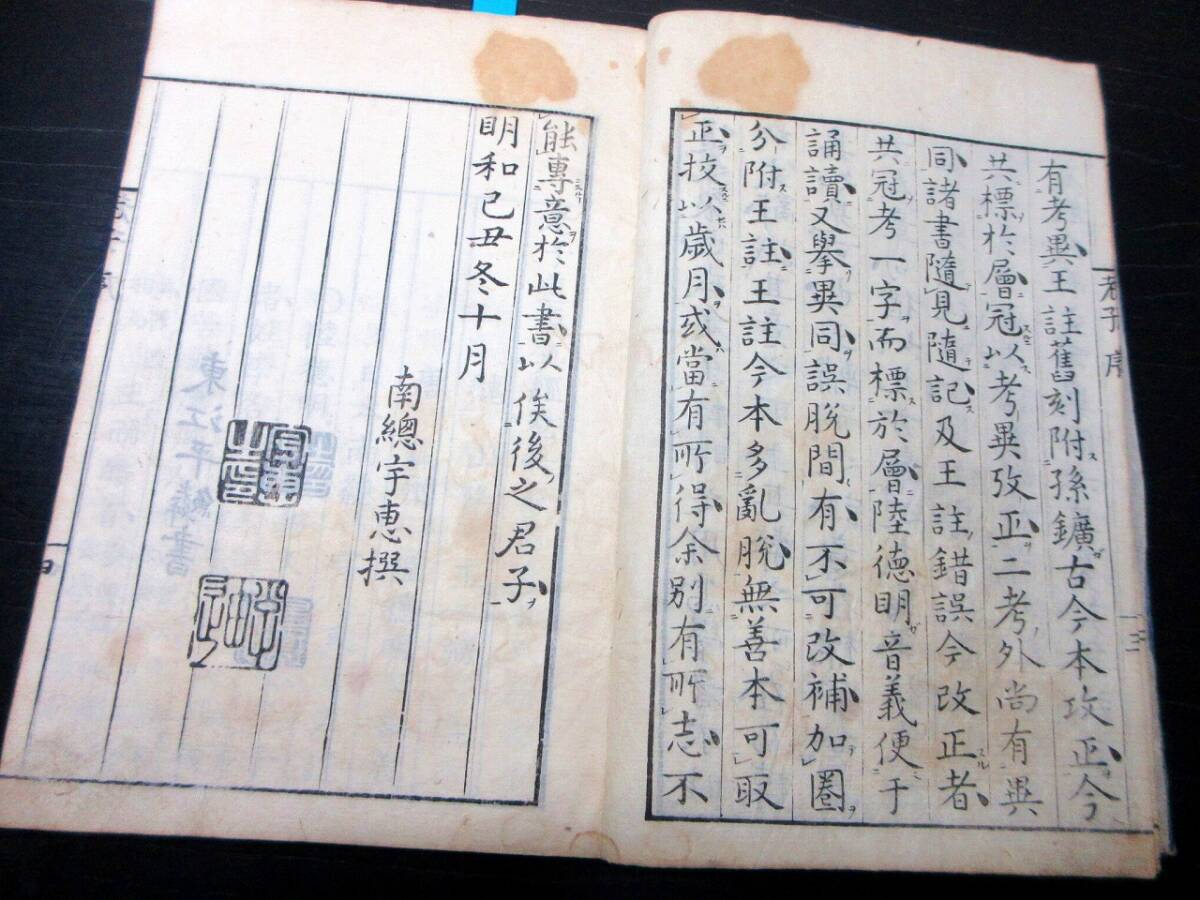 有考異王註舊刻附孫鑛古今本攻正今
共標於層冠以考異攷正二考外尚有異
同諸書隨見隨記及王註錯誤今改正者
共冠考一字而標於層陸德明音義便于
誦讀又舉異同誤脫間有不可改補加圈
分附王註王註今本多亂脫無善本可取
正技以歲月或當有所得余別有所志不
能專意於此書以俟後之君子
明和己丑冬十月
南總宇惠撰
老子序
三
四
東江平鱗書